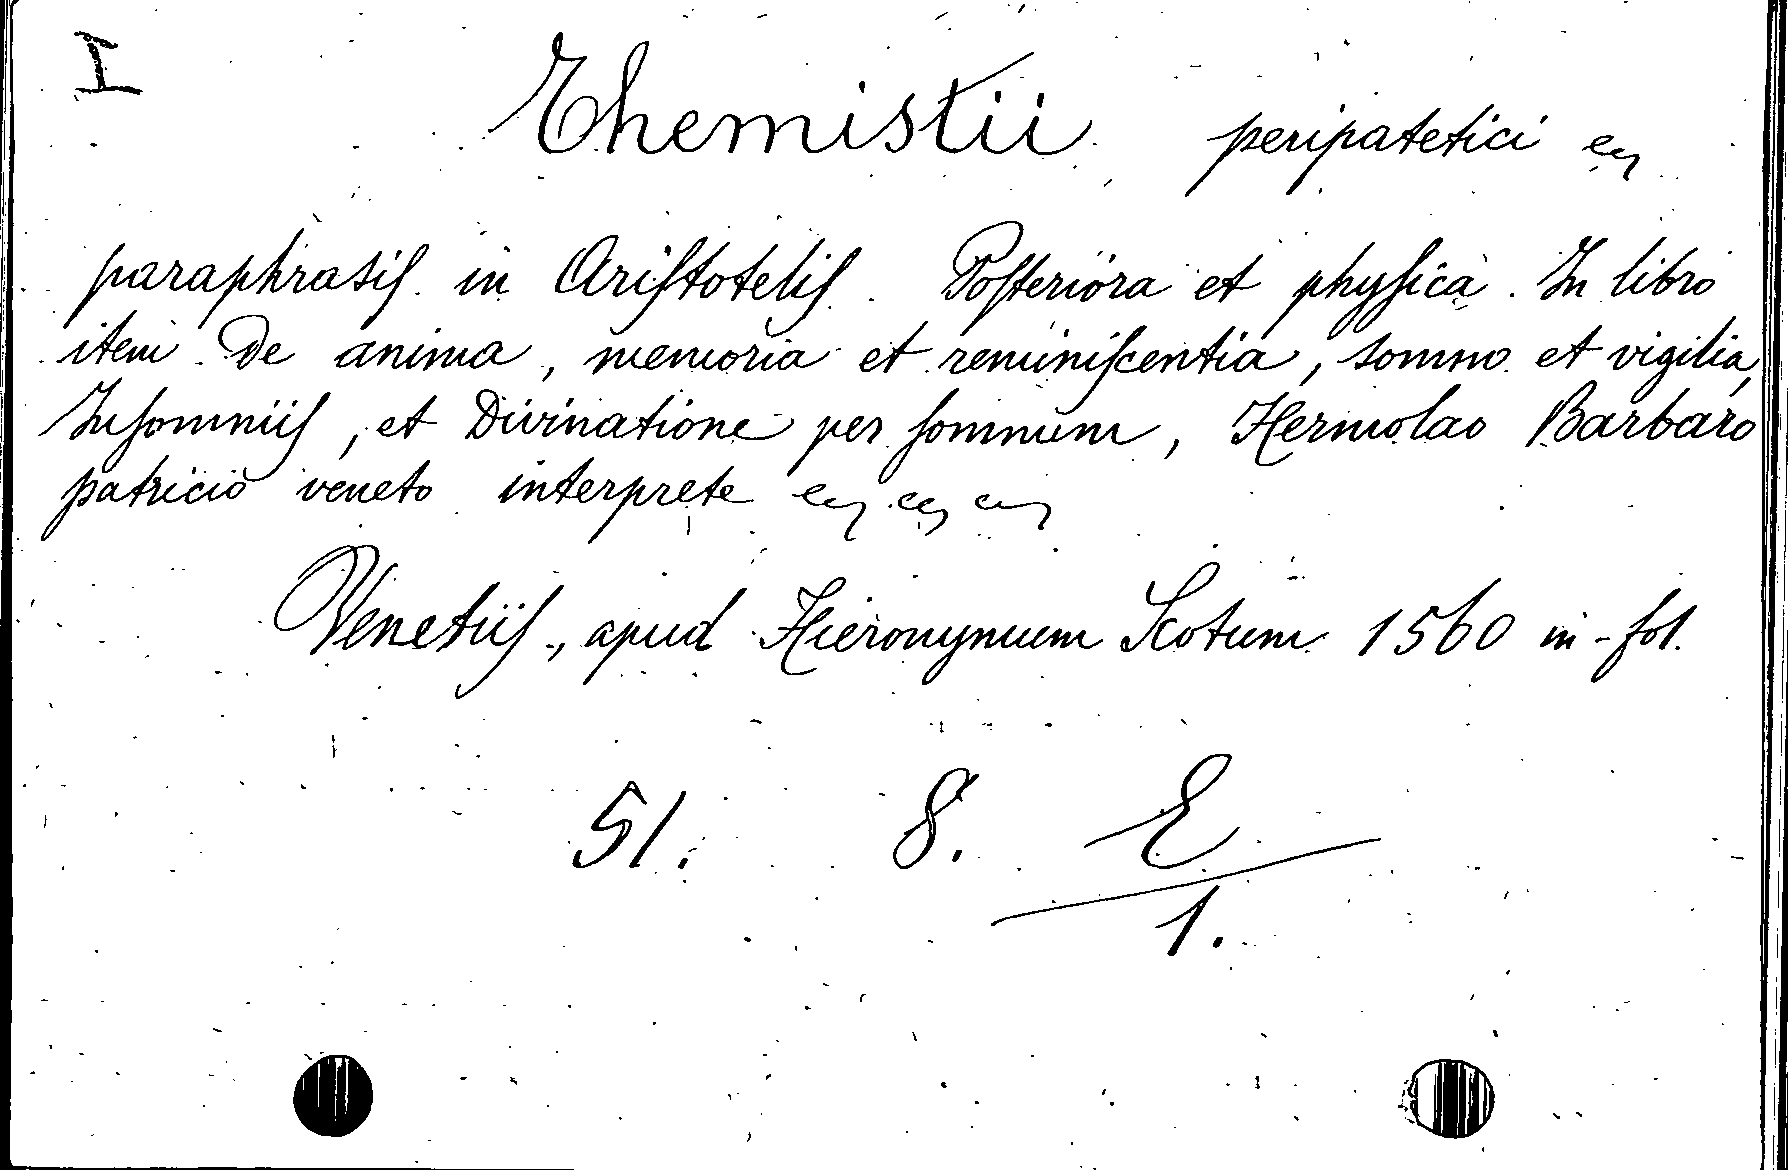 I
Themistii peripatetici
paraphrasiſ in Ariſtoteliſ. Poſteriora et phyſica. In libro
item De anima, memoria et reminiſcentia, somno et vigilia,
Inſomniiſ, et Divinatione per ſomnum, Hermolao Barbaro
patricio veneto interprete
Venetiiſ, apud Hieronymum Scotum 1560 in-fol.
51. 8. E
1.